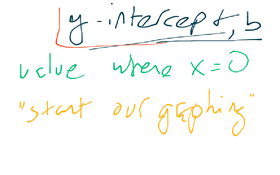 y-intercept, b
value where x=0
"start our graphing"